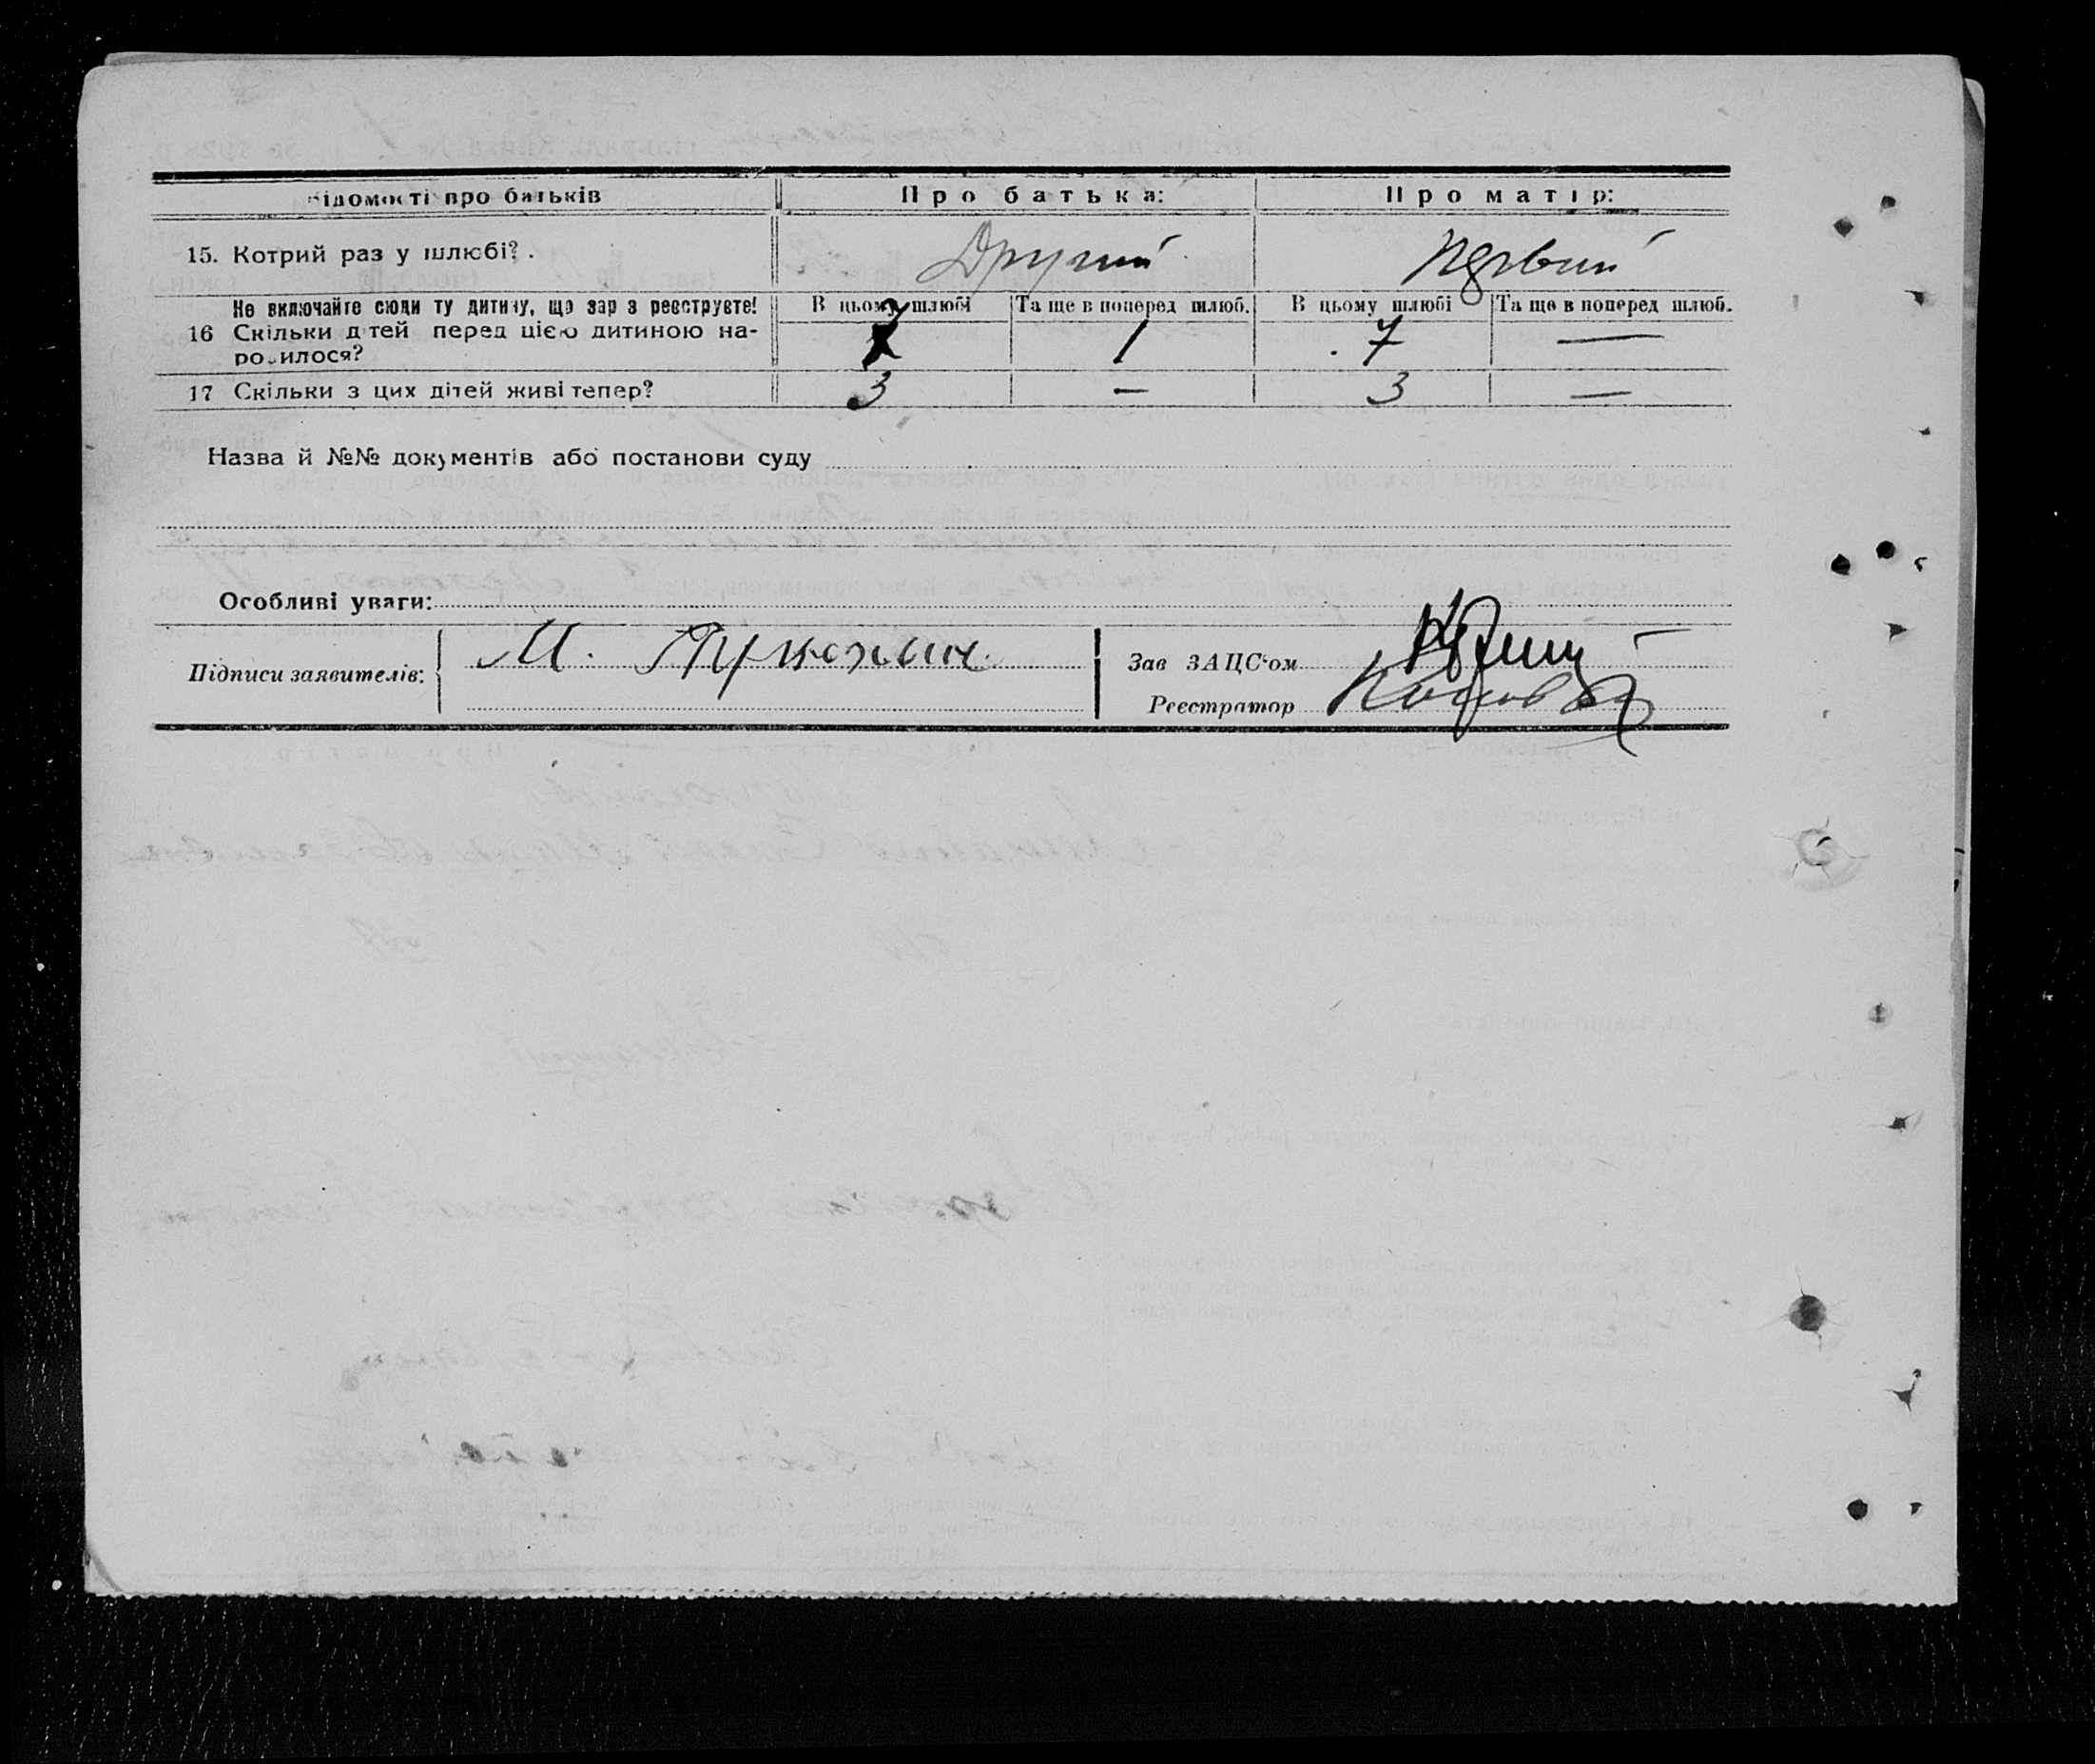 Відомості про батьків Про батька: Про матір:
15. Котрий раз у шлюбі? . Другий Первий
Не включайте сюди ту дитину, що зараз реєструєте!
В цьому шлюбі Та ще в поперед шлюб. В цьому шлюбі Та ще в поперед шлюб.
16 Скільки дітей перед цією дитиною на-
родилося? 7 1 7 —
17 Скільки з цих дітей живі тепер? 3 — 3 —
Назва й №№ документів або постанови суду
Особливі уваги:
Підписи заявителів: М.
Зав ЗАЦС'ом
Реєстратор